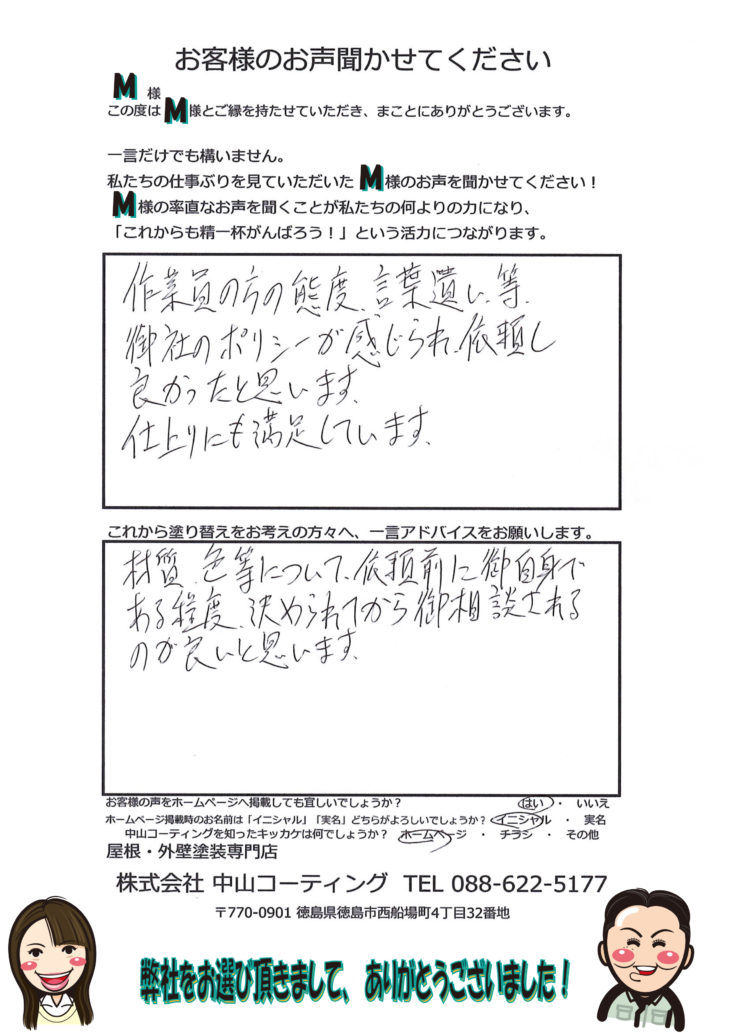 お客様のお声聞かせてください
M 様
この度は M 様とご縁を持たせていただき、まことにありがとうございます。
一言だけでも構いません。
私たちの仕事ぶりを見ていただいた M 様のお声を聞かせてください！
M 様の率直なお声を聞くことが私たちの何よりの力になり、
「これからも精一杯がんばろう！」という活力につながります。
作業員の方の態度、言葉遣い、等、
御社のポリシーが感じられ、依頼し
良かったと思います。
仕上りにも満足しています。
これから塗り替えをお考えの方々へ、一言アドバイスをお願いします。
材質、色等について、依頼前に御自身で
ある程度、決められてから御相談される
のが良いと思います。
お客様の声をホームページへ掲載しても宜しいでしょうか？ はい ・ いいえ
ホームページ掲載時のお名前は「イニシャル」「実名」どちらがよろしいでしょうか？ イニシャル ・ 実名
中山コーティングを知ったキッカケは何でしょうか？ ホームページ ・ チラシ ・ その他
屋根・外壁塗装専門店
株式会社 中山コーティング TEL 088-622-5177
〒770-0901 徳島県徳島市西船場町4丁目32番地
弊社をお選び頂きまして、ありがとうございました！